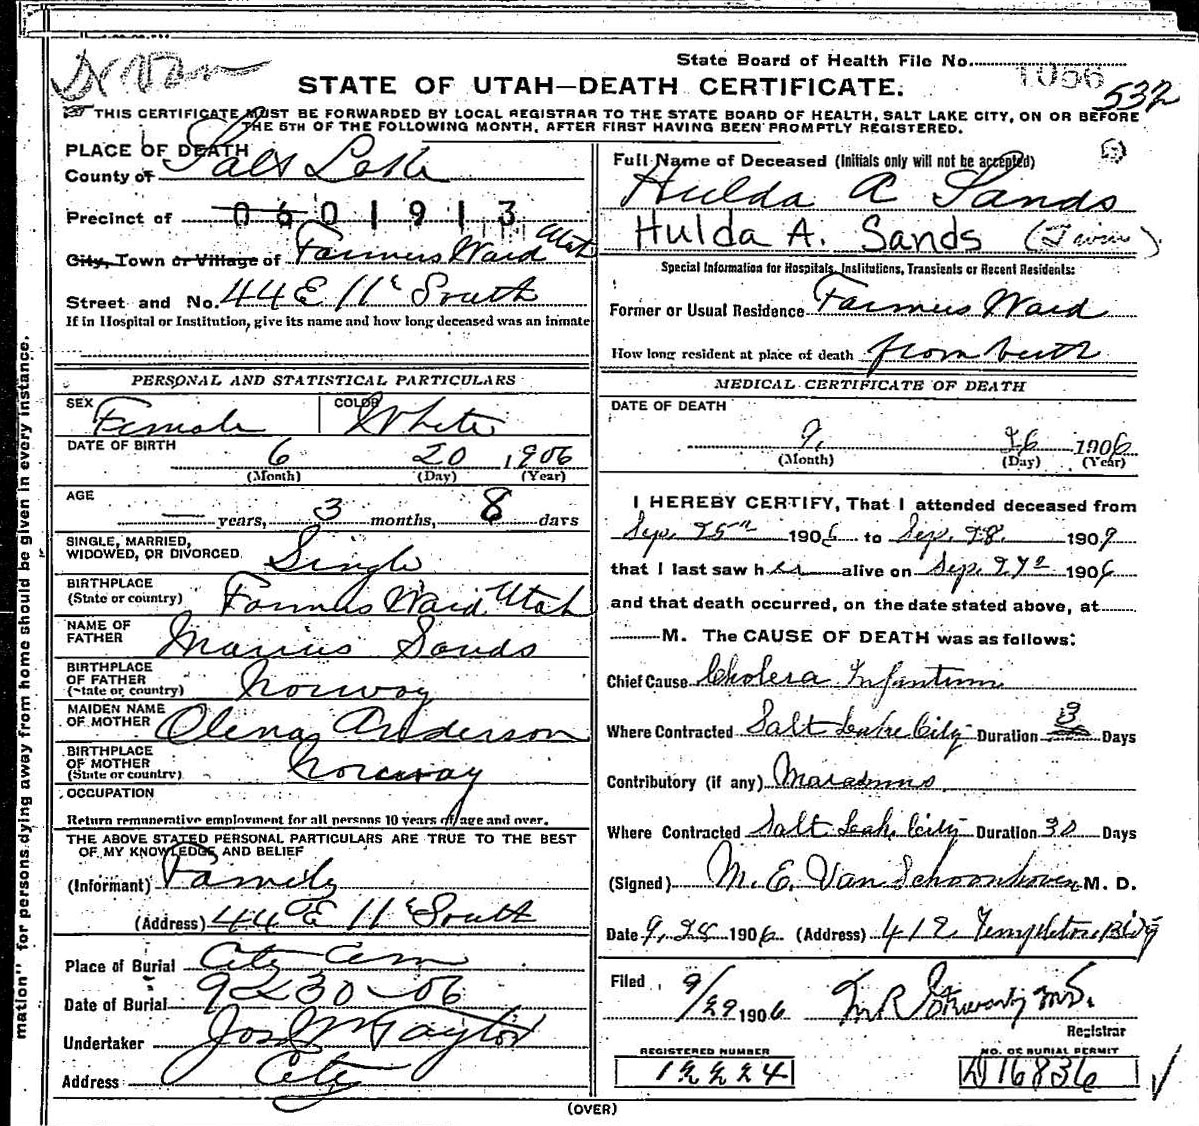 Dr Van
State Board of Health File No. 1056
532
STATE OF UTAH—DEATH CERTIFICATE.
THIS CERTIFICATE MUST BE FORWARDED BY LOCAL REGISTRAR TO THE STATE BOARD OF HEALTH, SALT LAKE CITY, ON OR BEFORE
THE 5TH OF THE FOLLOWING MONTH, AFTER FIRST HAVING BEEN PROMPTLY REGISTERED.
PLACE OF DEATH
County of Salt Lake
Precinct of 0601913
City, Town or Village of Farmers Ward Utah
Street and No. 44 E 11 South
If in Hospital or Institution, give its name and how long deceased was an inmate
Full Name of Deceased (Initials only will not be accepted)
Hulda A Sands
Hulda A. Sands (Twin)
Special Information for Hospitals, Institutions, Transients or Recent Residents:
Former or Usual Residence Farmers Ward
How long resident at place of death from birth
PERSONAL AND STATISTICAL PARTICULARS
SEX Female COLOR White
DATE OF BIRTH
6 20 1906
(Month) (Day) (Year)
AGE
— years, 3 months, 8 days
SINGLE, MARRIED,
WIDOWED, OR DIVORCED Single
BIRTHPLACE
(State or country) Farmers Ward Utah
NAME OF
FATHER Marius Sands
BIRTHPLACE
OF FATHER
(State or country) Norway
MAIDEN NAME
OF MOTHER Olena Anderson
BIRTHPLACE
OF MOTHER
(State or country) Norway
OCCUPATION
Return remunerative employment for all persons 10 years of age and over.
THE ABOVE STATED PERSONAL PARTICULARS ARE TRUE TO THE BEST
OF MY KNOWLEDGE AND BELIEF
(Informant) Family
(Address) 44 E 11 South
Place of Burial City Cem
Date of Burial 9-30-06
Undertaker Jos Wm Taylor
Address City
MEDICAL CERTIFICATE OF DEATH
DATE OF DEATH
9, 1906
(Month) (Day) (Year)
I HEREBY CERTIFY, That I attended deceased from
Sep. 25th 1906 to Sep. 28. 1909
that I last saw her alive on Sep. 27th 1906
and that death occurred, on the date stated above, at
M. The CAUSE OF DEATH was as follows:
Chief Cause Cholera Infantum
Where Contracted Salt Lake City Duration 3 Days
Contributory (if any) Marasmus
Where Contracted Salt Lake City Duration 30 Days
(Signed) M. E. Van Schoonhoven M. D.
Date 9, 28 1906 (Address) 412 Templeton Bldg
Filed 9/29 1906 M.D.
Registrar
REGISTERED NUMBER
12224
NO. OF BURIAL PERMIT
D16836
(OVER)
mation" for persons dying away from home should be given in every instance.